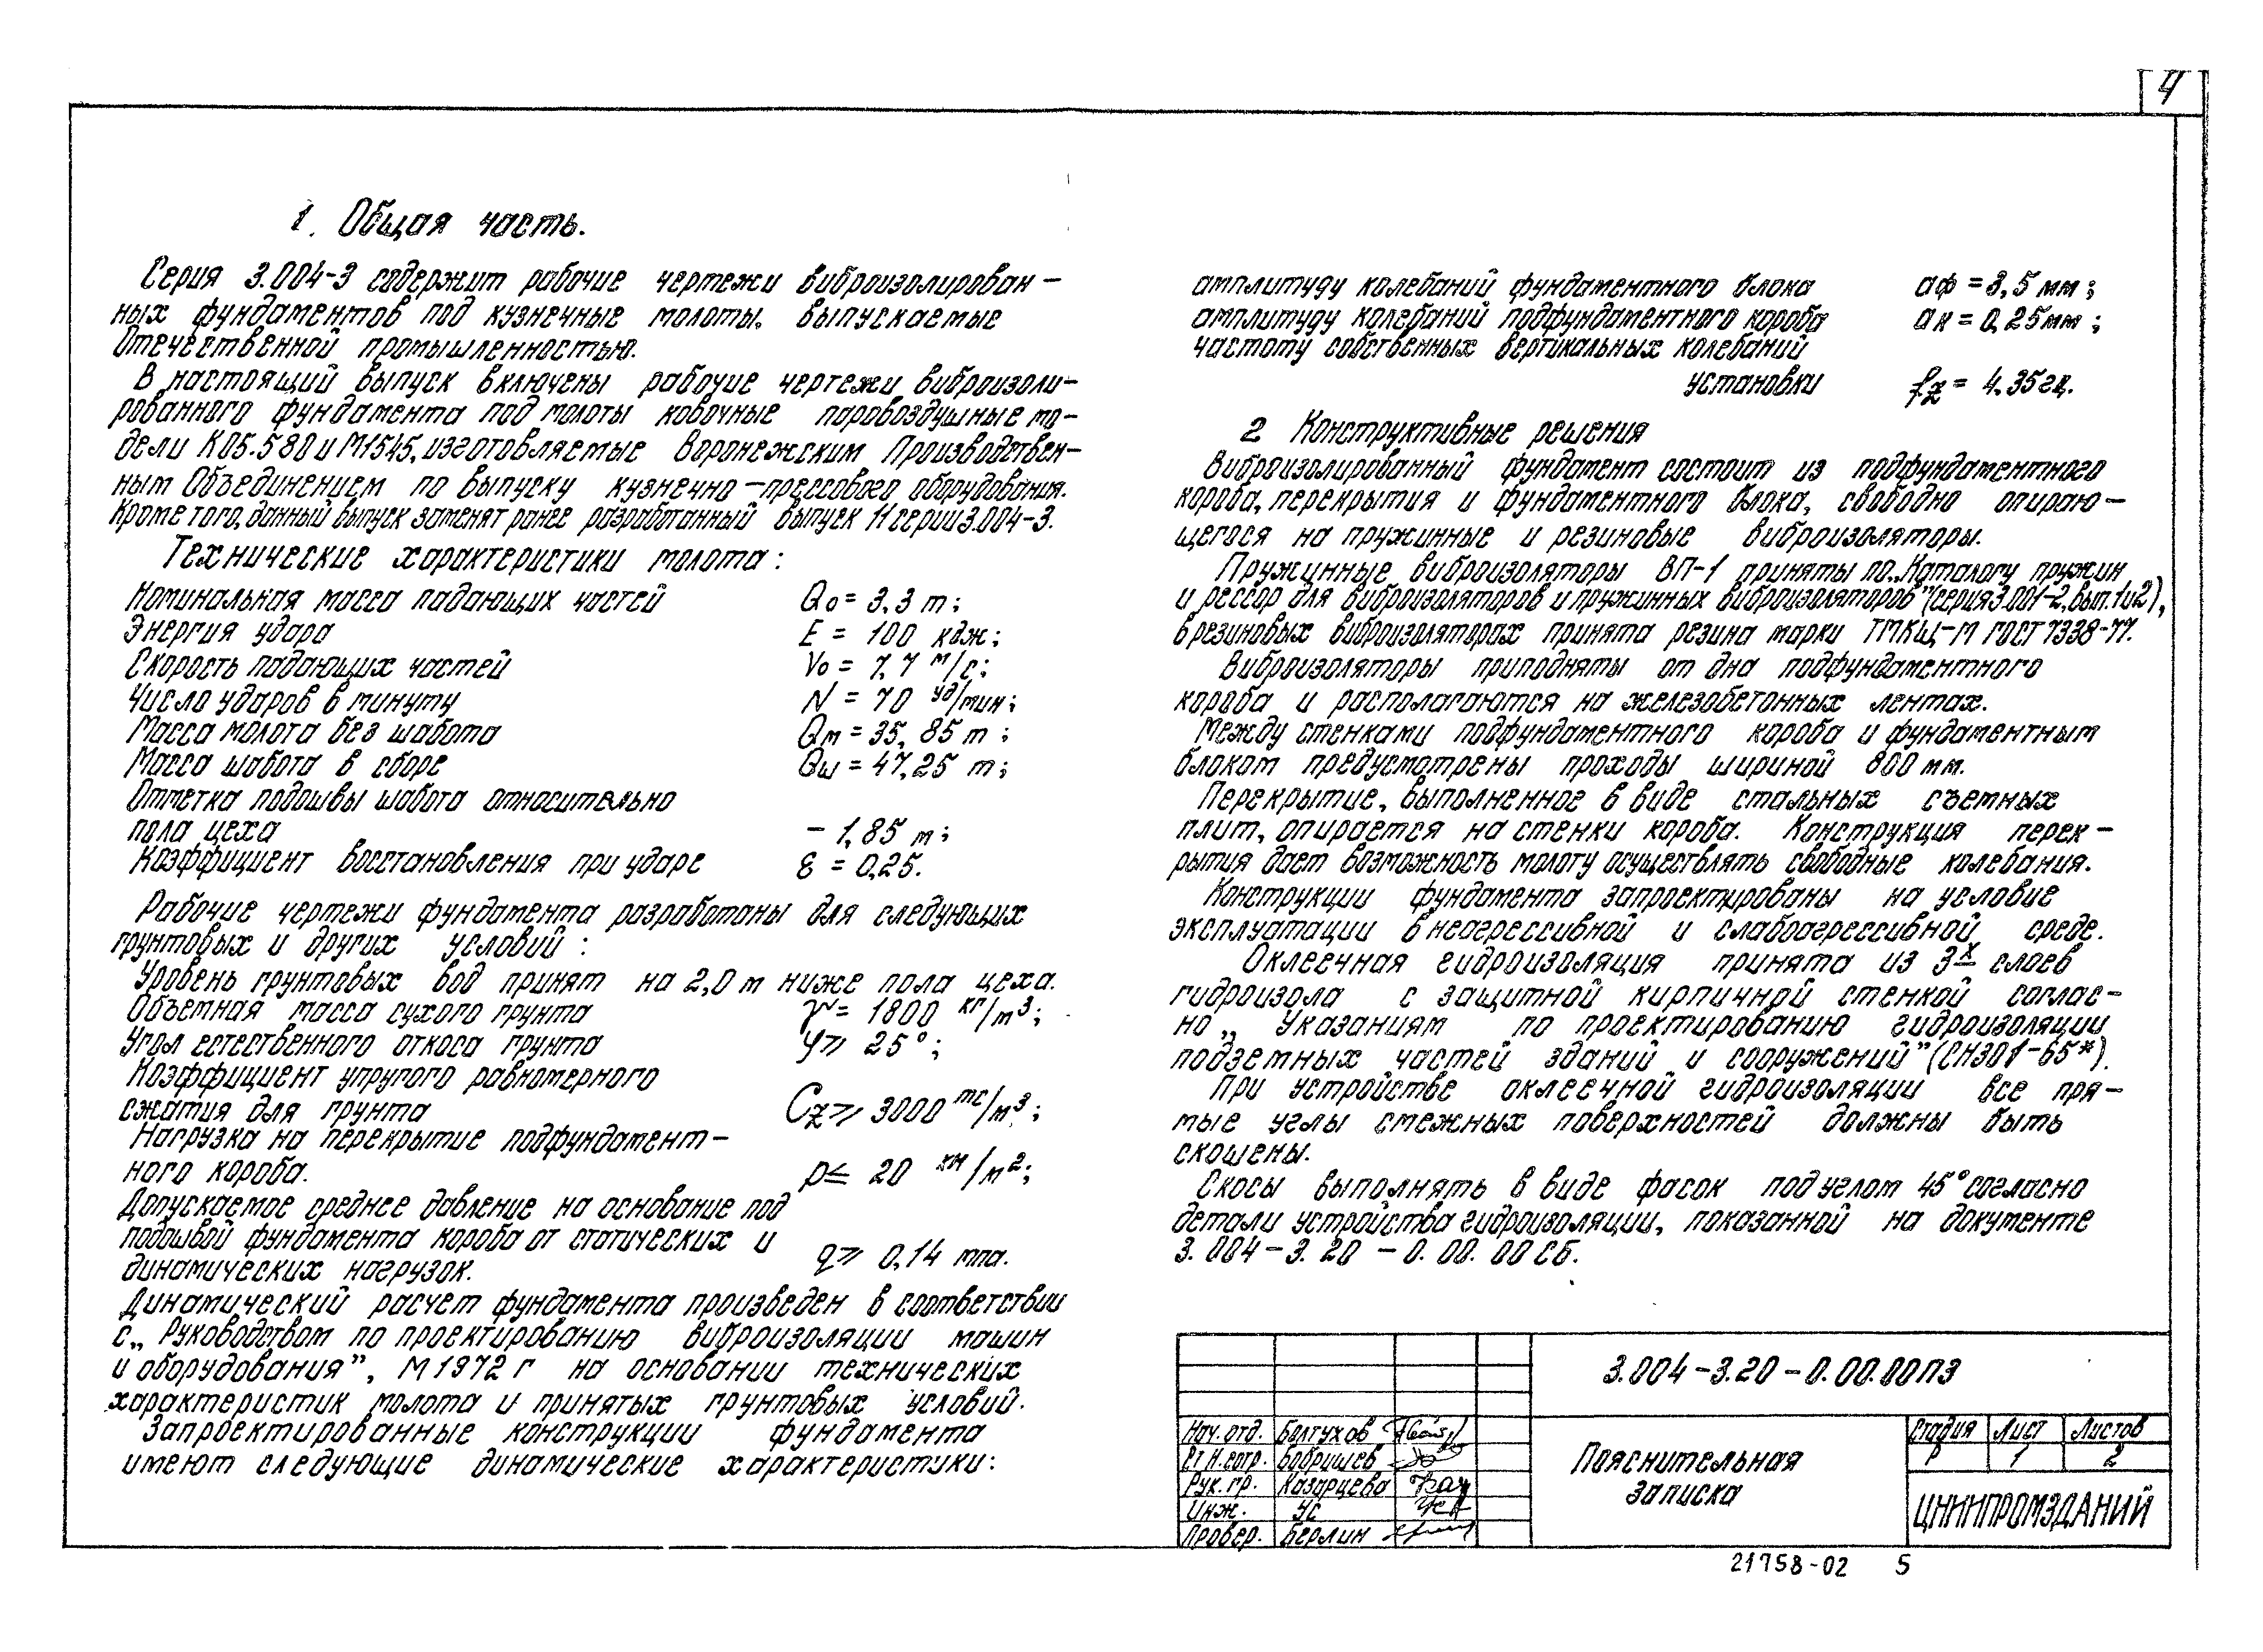 4
1. Общая часть.
Серия 3.004-3 содержит рабочие чертежи виброизолирован-
ных фундаментов под кузнечные молоты, выпускаемые
Отечественной промышленностью.
В настоящий выпуск включены рабочие чертежи виброизоли-
рованного фундамента под молоты ковочные паровоздушные мо-
дели К05.580 и М1545, изготовляемые Воронежским Производствен-
ным Объединением по выпуску кузнечно-прессового оборудования.
Кроме того, данный выпуск заменят ранее разработанный выпуск 11 серии 3.004-3.
Технические характеристики молота:
Номинальная масса падающих частей Q₀ = 3,3 т;
Энергия удара E = 100 кдж;
Скорость падающих частей V₀ = 7,7 м/с;
Число ударов в минуту N = 70 уд/мин;
Масса молота без шабота Qм = 35,85 т;
Масса шабота в сборе Qш = 47,25 т;
Отметка подошвы шабота относительно
пола цеха - 1,85 м;
Коэффициент восстановления при ударе ε = 0,25.
Рабочие чертежи фундамента разработаны для следующих
грунтовых и других условий:
Уровень грунтовых вод принят на 2,0 м ниже пола цеха.
Объемная масса сухого грунта γ = 1800 кг/м³;
Угол естественного откоса грунта φ ⩾ 25°;
Коэффициент упругого равномерного
сжатия для грунта Cz ⩾ 3000 тс/м³;
Нагрузка на перекрытие подфундамент-
ного короба. p ⩽ 20 кн/м²;
Допускаемое среднее давление на основание под
подошвой фундамента короба от статических и
динамических нагрузок. q ⩾ 0,14 мпа.
Динамический расчет фундамента произведен в соответствии
с „Руководством по проектированию виброизоляции машин
и оборудования”, М 1972 г на основании технических
характеристик молота и принятых грунтовых условий.
Запроектированные конструкции фундамента
имеют следующие динамические характеристики:
амплитуду колебаний фундаментного блока aф = 3,5 мм;
амплитуду колебаний подфундаментного короба aк = 0,25 мм;
частоту собственных вертикальных колебаний
установки fz = 4.35 гц.
2 Конструктивные решения
Виброизолированный фундамент состоит из подфундаментного
короба, перекрытия и фундаментного блока, свободно опираю-
щегося на пружинные и резиновые виброизоляторы.
Пружинные виброизоляторы ВП-1 приняты по „Каталогу пружин
и рессор для виброизоляторов и пружинных виброизоляторов” (серия 3.001-2, вып. 1 и 2),
в резиновых виброизоляторах принята резина марки ТМКЩ-М ГОСТ 7338-77.
Виброизоляторы приподняты от дна подфундаментного
короба и располагаются на железобетонных лентах.
Между стенками подфундаментного короба и фундаментным
блоком предусмотрены проходы шириной 800 мм.
Перекрытие, выполненное в виде стальных съемных
плит, опирается на стенки короба. Конструкция перек-
рытия дает возможность молоту осуществлять свободные колебания.
Конструкции фундамента запроектированы на условие
эксплуатации в неагрессивной и слабоагрессивной среде.
Оклеечная гидроизоляция принята из 3х слоев
гидроизола с защитной кирпичной стенкой соглас-
но „Указаниям по проектированию гидроизоляции
подземных частей зданий и сооружений” (СН301-65*).
При устройстве оклеечной гидроизоляции все пря-
мые углы смежных поверхностей должны быть
скошены.
Скосы выполнять в виде фасок под углом 45° согласно
детали устройства гидроизоляции, показанной на документе
3.004-3.20-0.00.00СБ.
3.004-3.20-0.00.00ПЗ
Нач. отд. Болтухов
Ст н. сотр. Бобришев
Рук. гр. Казарцева
Инж. Ус
Провер. Берлин
Пояснительная
записка
Стадия Лист Листов
Р 1 2
ЦНИИПРОМЗДАНИЙ
21758-02 5